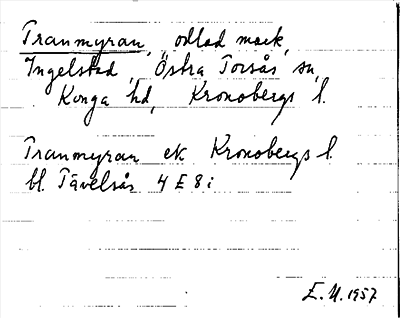 Tranmyran, odlad mark,
Ingelstad, Östra Torsås sn,
Konga hd, Kronobergs l.
Tranmyran ek Kronobergs l.
bl. Tävelsås 4 E 8 i
E.U. 1957